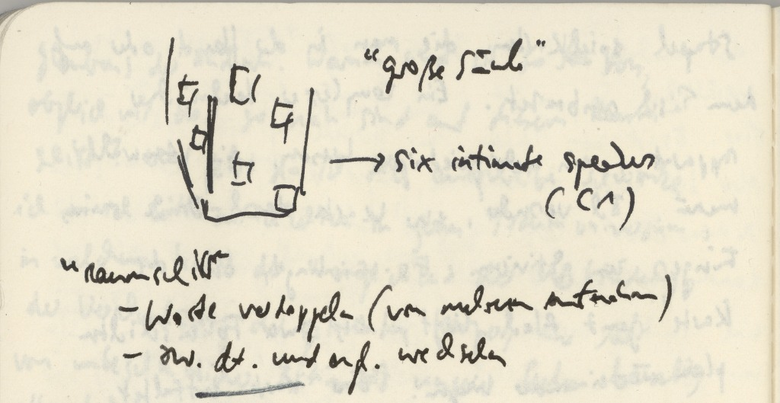 "große Säule"
six intimate speakers
(C1)
"raumschiff"
- Worte verdoppeln (von mehreren aufnehmen)
- zw. dt. und engl. wechseln